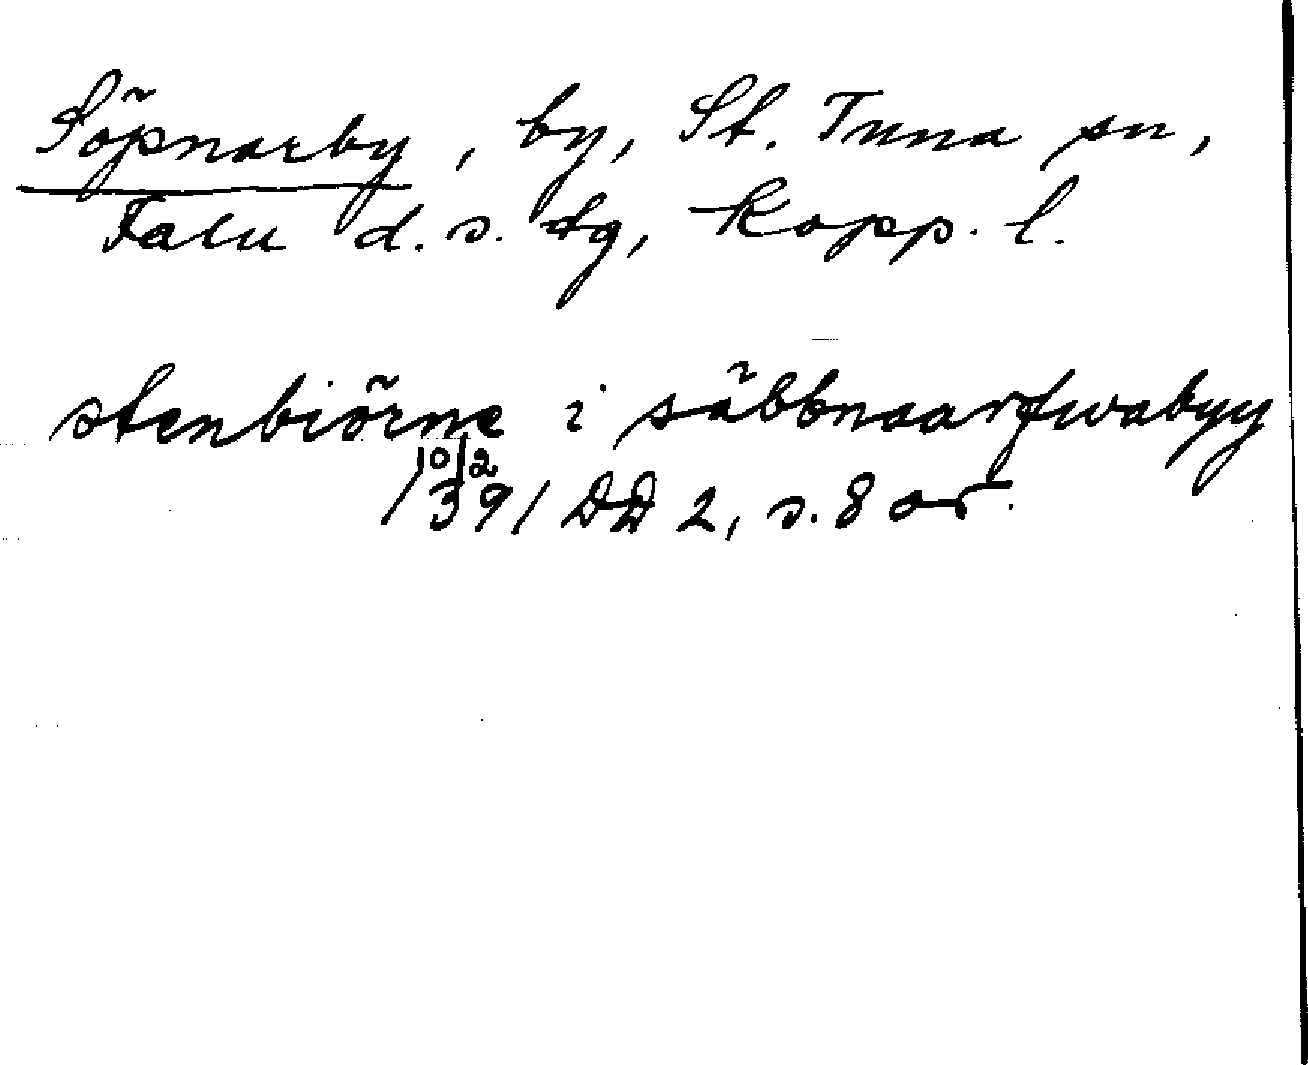 Söpnarby, by, St. Tuna sn,
Falu d.s. tg, Kopp. l.
stenbiörne i säbbnaarfwabyy
10/2
1391 DD 2, s. 8 or.